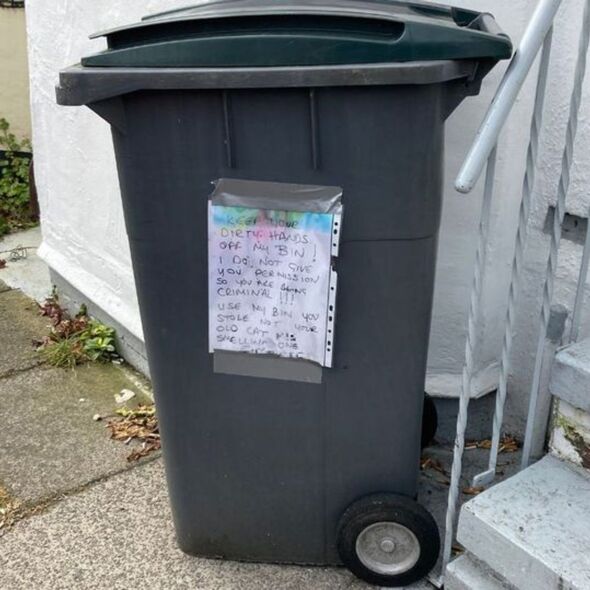 KEEP YOUR
DIRTY HANDS
OFF MY BIN!
I DO NOT GIVE
YOU PERMISSION
SO YOU ARE BEING
CRIMINAL!!!
USE MY BIN YOU
STOLE NOT YOUR
OLD CAT
SMELLING ONE